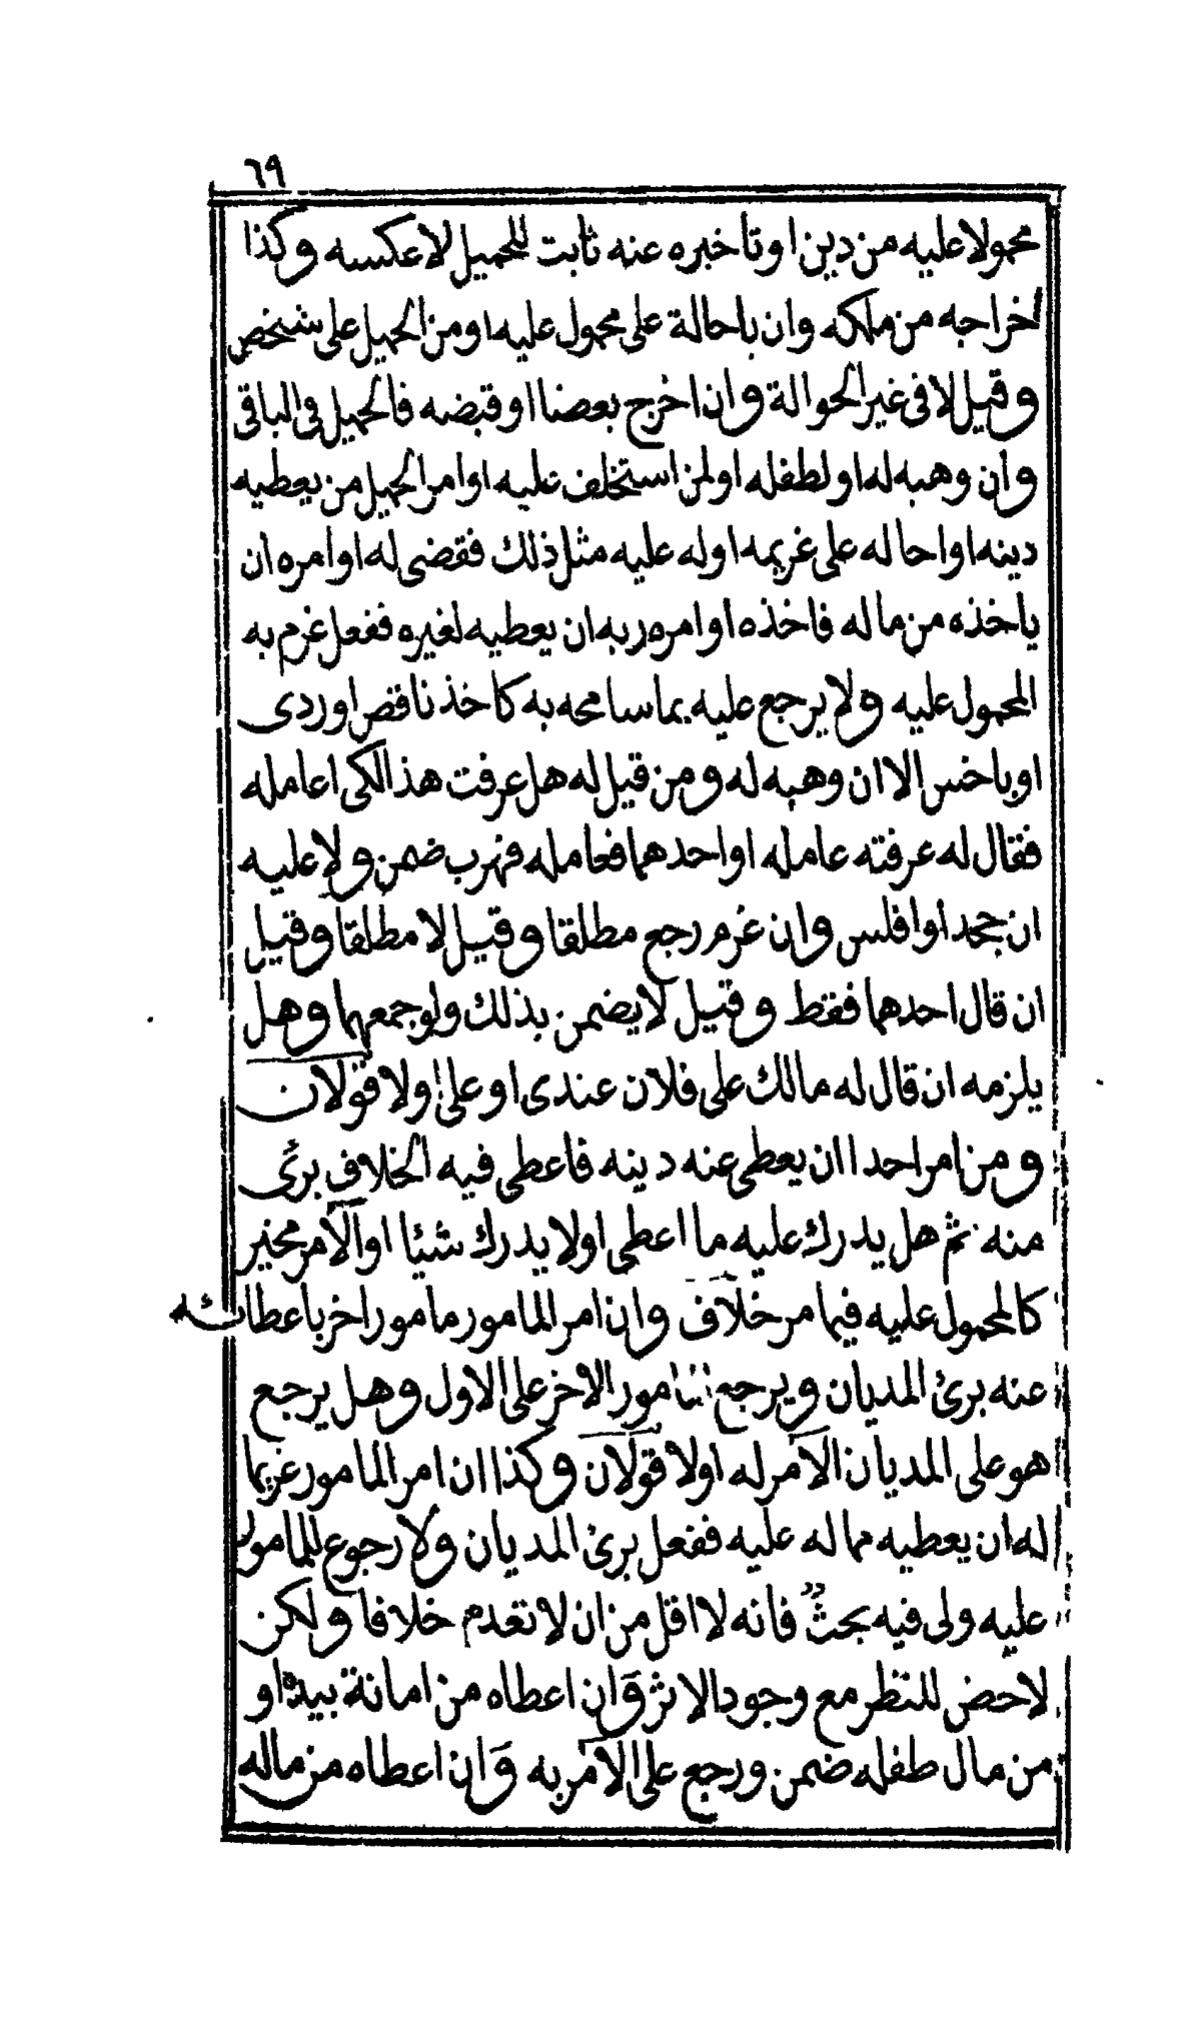 ٦٩
محمولا عليه من دين او تاخيره عنه ثابت للحميل لا عكسه وكذا
اخراجه من ملكه وان باحالة على محمول عليه او من الحميل على شخص
وقيل لا فى غير الحوالة وان اخرج بعضا او قبضه فالحميل فى الباقى
وان وهبه له او لطفله او لمن استخلف عليه او امر الحميل من يعطيه
دينه او احا له على غريمه او له عليه مثل ذلك فقضى له او امره ان
ياخذه من ماله فاخذه او امره ربه ان يعطيه لغيره ففعل غرم به
المحمول عليه ولا يرجع عليه بما سامحه به كاخذ ناقص او ردى
او باخس الا ان وهبه له ومن قيل له هل عرفت هذا لكى اعامله
فقال له عرفته عامله او احدهما فعامله فهرب ضمن ولا عليه
ان جحد او افلس وان غرم رجع مطلقا وقيل لا مطلقا وقيل
ان قال احدهما فقط وقيل لا يضمن بذلك ولو جمعهما وهل
يلزمه ان قال له مالك على فلان عندى او على اولا قولان
ومن امر احدا ان يعطى عنه دينه فاعطى فيه الخلاف برئ
منه ثم هل يدرك عليه ما اعطى اولا يدرك شيئا او الآمر مخير
كالمحمول عليه فيما مر خلاف وان امر المامور مامورا اخر باعطائه
عنه برئ المديان ويرجع المامور الاخر على الاول وهل يرجع
هو على المديان الآمر له اولا قولان وكذا ان امر المامور غريما
له ان يعطيه مما له عليه ففعل برئ المديان ولا رجوع للمامور
عليه ولى فيه بحث فانه لا اقل من ان لا تعدم خلافا ولكن
لاحض للنظر مع وجود الاثر وان اعطاه من امانة بيده او
من مال طفله ضمن ورجع على الآمر به وان اعطاه من ماله